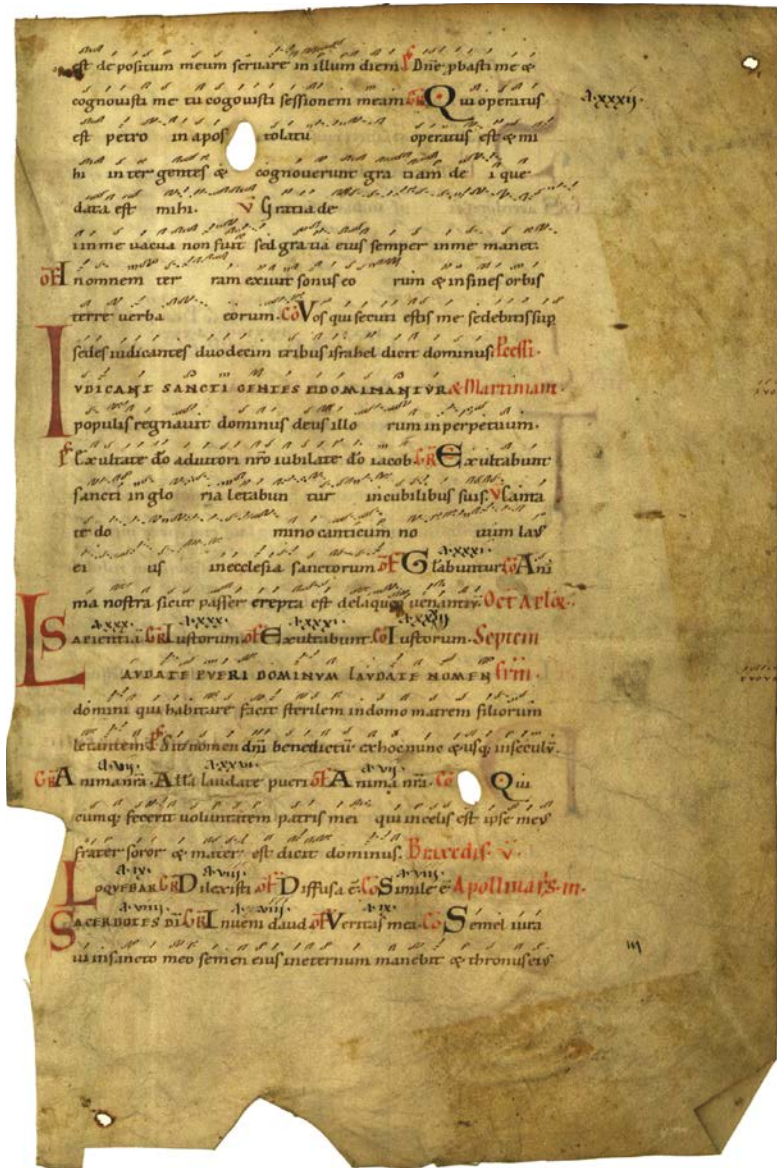 est depositum meum servare in illum diem. Ps Dne pbasti me &
cognovisti me tu cogovisti sessionem meam. GR Qui operatus A.xxxij.
est petro in apos tolatu operatus est & mi
hi inter gentes & cognoverunt gra tiam de i que
data est mihi. V Gratia de
i in me vacua non fuit sed gratia eius semper in me manet.
OF In omnem ter ram exivit sonus eo rum & in fines orbis
terre verba eorum. CO Vos qui secuti estis me sedebitis sup
sedes iudicantes duodecim tribus israhel dicit dominus. Pcessi.
IUDICANT SANCTI GENTES & DOMINANTUR & Martiniani.
populis regnavit dominus deus illo rum in perpetuum.
Ps Exultate do adiutori nro iubilate do iacob. GR Exultabunt
sancti in glo ria letabun tur in cubilibus suis. V Canta
te do mino canticum no vum laus
ei us in ecclesia sanctorum. OF A.xxxi. Glabuntur. CO Ani
ma nostra sicut passer erepta est de laqueo venantiu. Oct Aplox.
A.xxx. SAPIENTIA. GR A.xxx. Iustorum. OF A.xxxi. Exultabunt. CO Iustorum. Septem
LAUDATE PUERI DOMINUM LAUDATE NOMEN frm.
domini qui habitare facit sterilem in domo matrem filiorum
letantem. Ps Sit nomen dni benedictu ex hoc nunc & usq; in seculu.
GR A.vij. Anima nra. A.xxvi. Alla laudate pueri. OF A.vij. Anima nra. CO Qui
cumq; fecerit voluntatem patris mei qui in celis est ipse meus
frater soror & mater est dicit dominus. V.
A.ix. LOQUEBAR. GR Dilexisti. OF A.viii. Diffusa e. CO A.viii. Simile e. Apollinaris m.
A.viii. SACERDOTES DI. GR A.viii. Inveni david. OF A.ix. Veritas mea. CO Semel iura
vi in sancto meo semen eius in eternum manebit & thronus eius